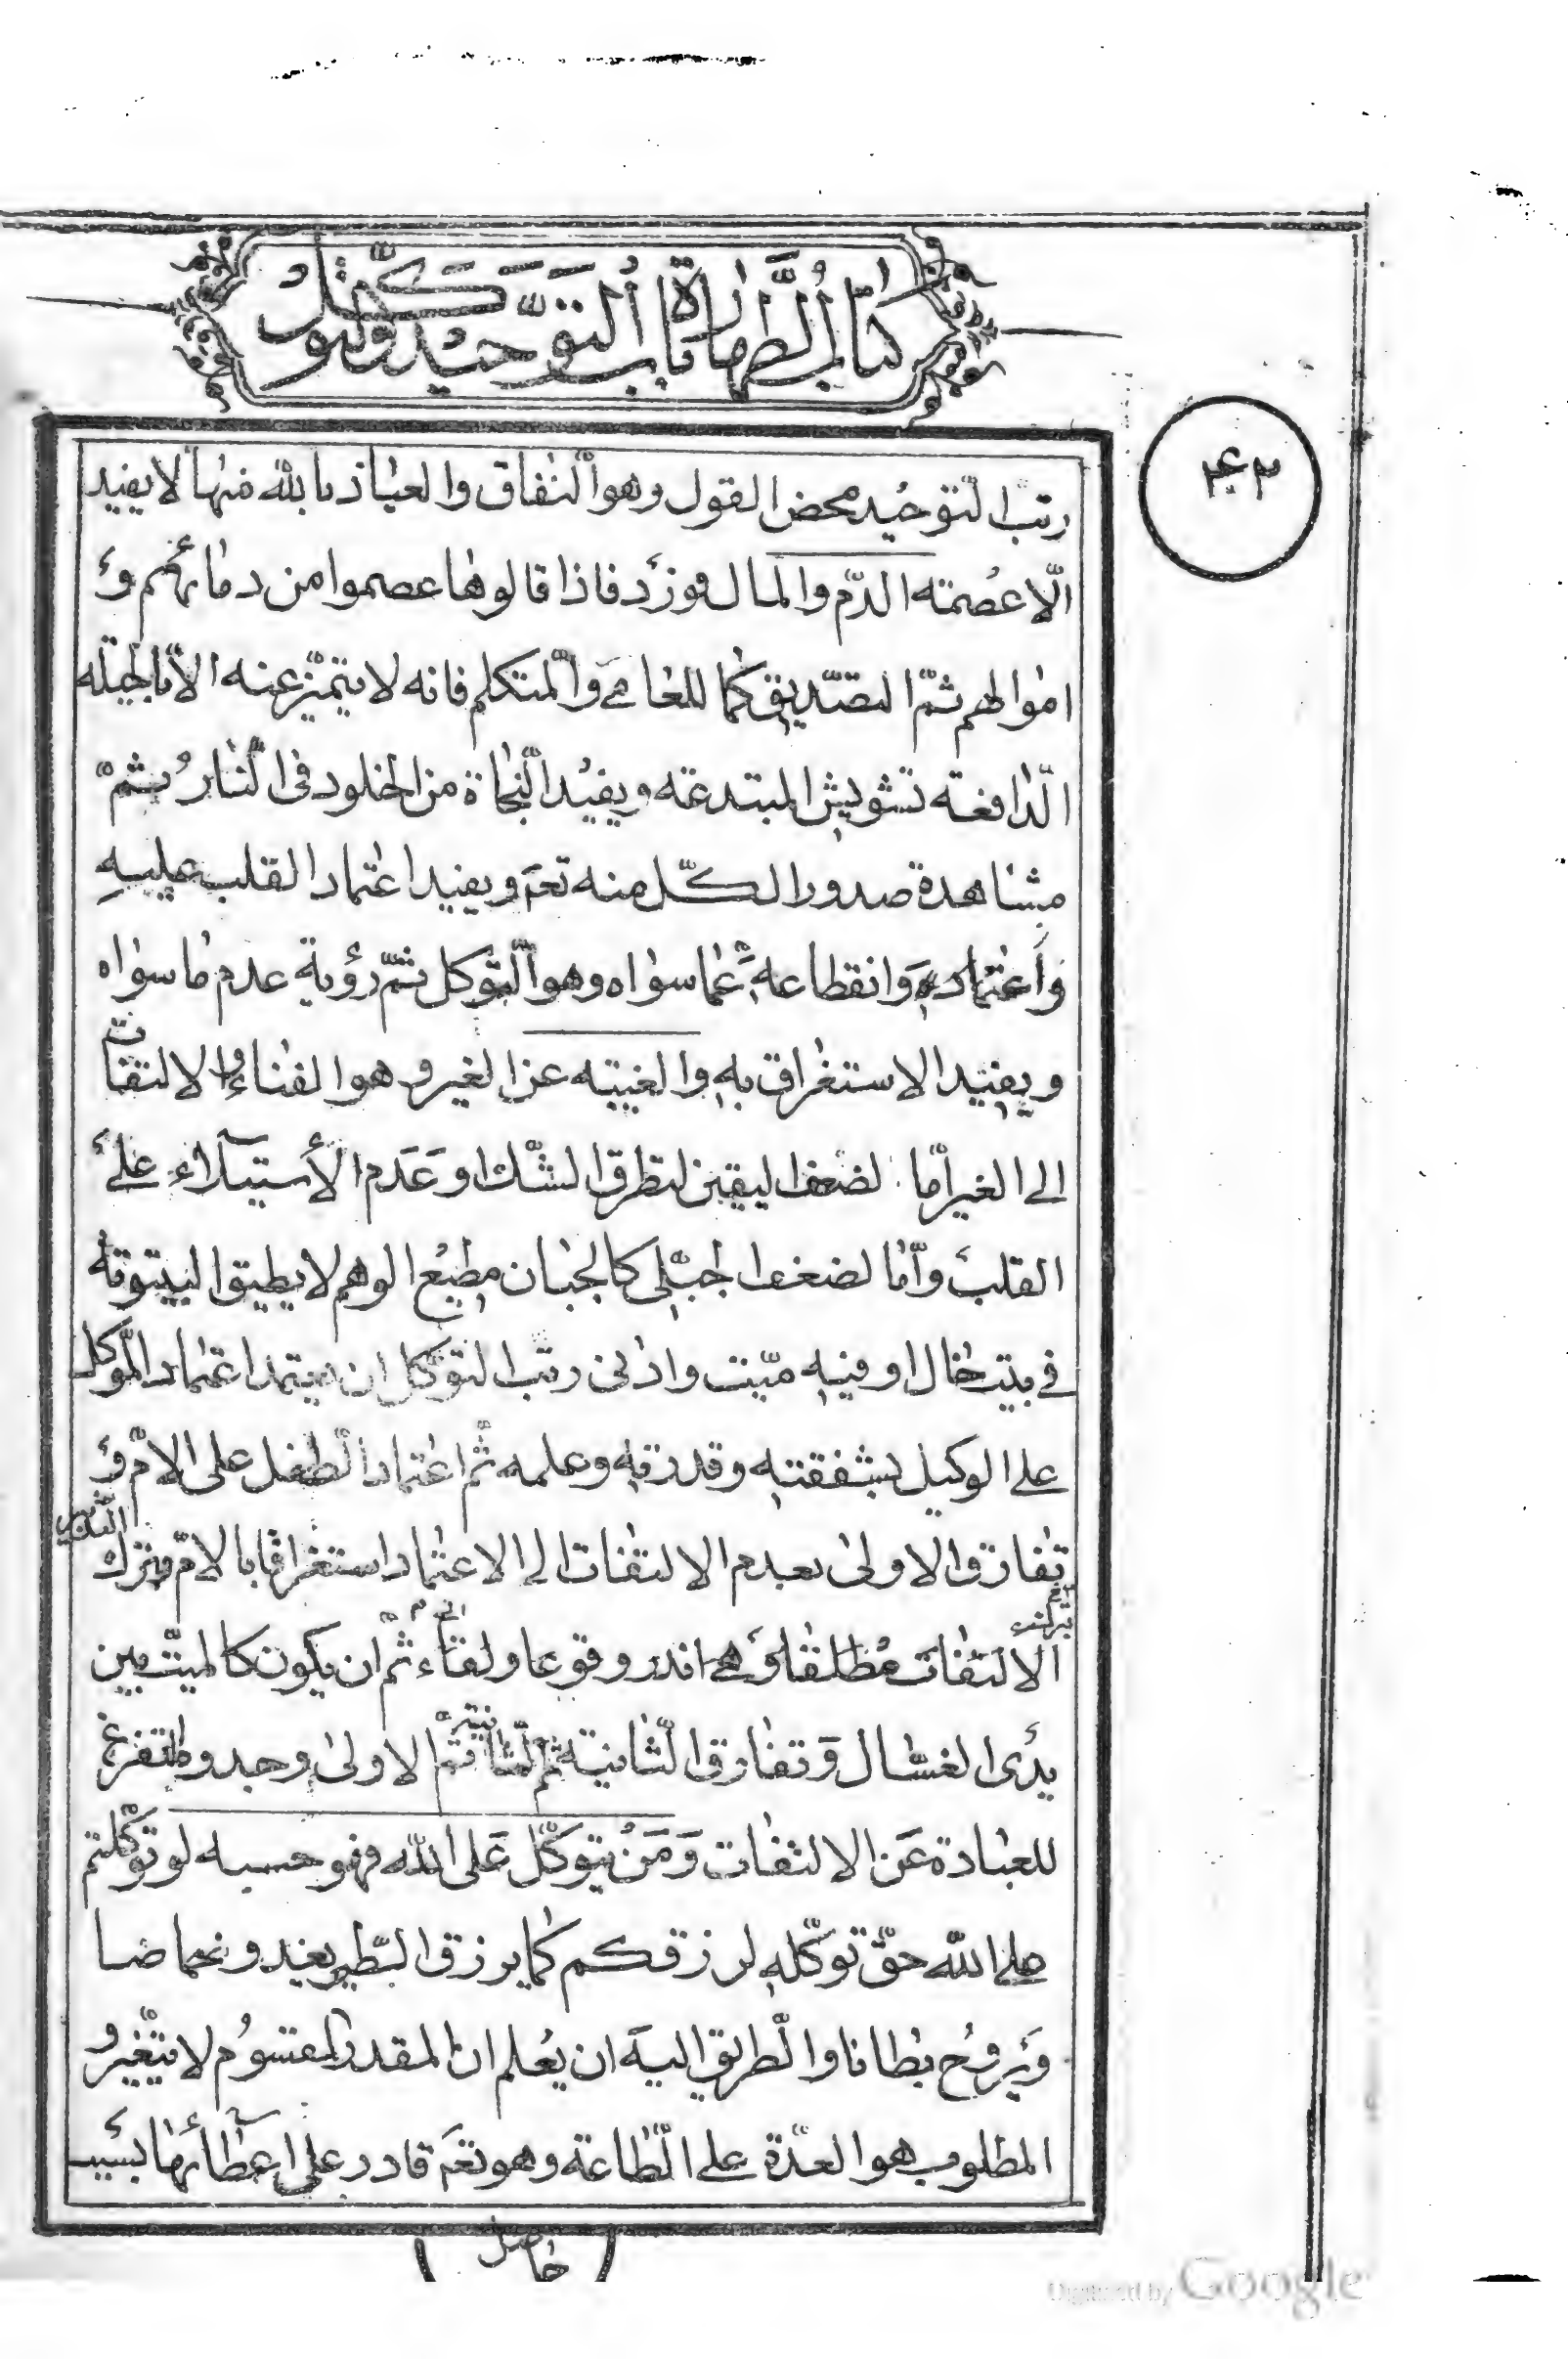 كتاب الطهارة باب التوحيد والتوكل
۴۲
رتب التوحيد محض القول وهو النفاق والعياذ بالله منها لا يفيد
الّا عصمته الدّم والمال فوزد فاذا قالوها عصموا من دمائهم و
اموالهم ثمّ التصديق كما للعامي والمتكلم فانه لا يتميّز عنه الّا بالحيله
الدافعة تشويش المبتدعه ويفيد النجاة من الخلود في النار ثمّ
مشاهدة صدور الكلّ منه تعم ويفيد اعتماد القلب عليه
واعتماده وانقطاعه عمّا سواه وهو التوكل ثمّ رؤية عدم ما سواه
ويفيد الاستغراق به والغيبته عن الغير وهو الفناء والالتفات
الى الغير امّا لضعف اليقين لتطرق الشك او عدم الأستيلاء على
القلب وامّا لضعف جبلى كالجبان مطيع الوهم لا يطيق البيتوتة
في بيت خال او فيه ميّت وادنى رتب التوكّل ان يعتمد اعتماد الموكل
على الوكيل بشفقته وقدرته وعلمه ثم اعتماد الطفل على الامّ و
تفارق الاولى بعدم الالتفات الى الاعتماد استغراقا بالامّ وترك التدبير
الالتفات مطلقا وهي اندر وقوعا ولقاء ثم ان يكون كالميّت بين
يدى الغسّال وتفارق الثانية ثم الثانية ثم الاولى وجد والتفرغ
للعبادة عن الالتفات ومن يتوكّل على الله فهو حسبه لو توكّلتم
على الله حقّ توكّله لرزقكم كما يرزق الطير يغدو خماصا
ويروح بطانا والطريق اليه ان يعلم ان المقدر المقسوم لا يتغير و
المطلوب هو العدّة على الطاعة وهو تعم قادر على اعطائها بسبب
( حاصل )
Digitized by Google